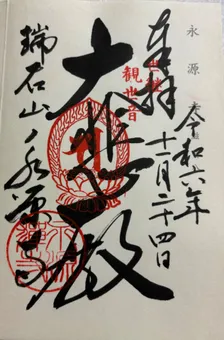 永源
奉拝
令和六年
十一月二十四日
世継
観世音
大悲殿
瑞石山永源寺